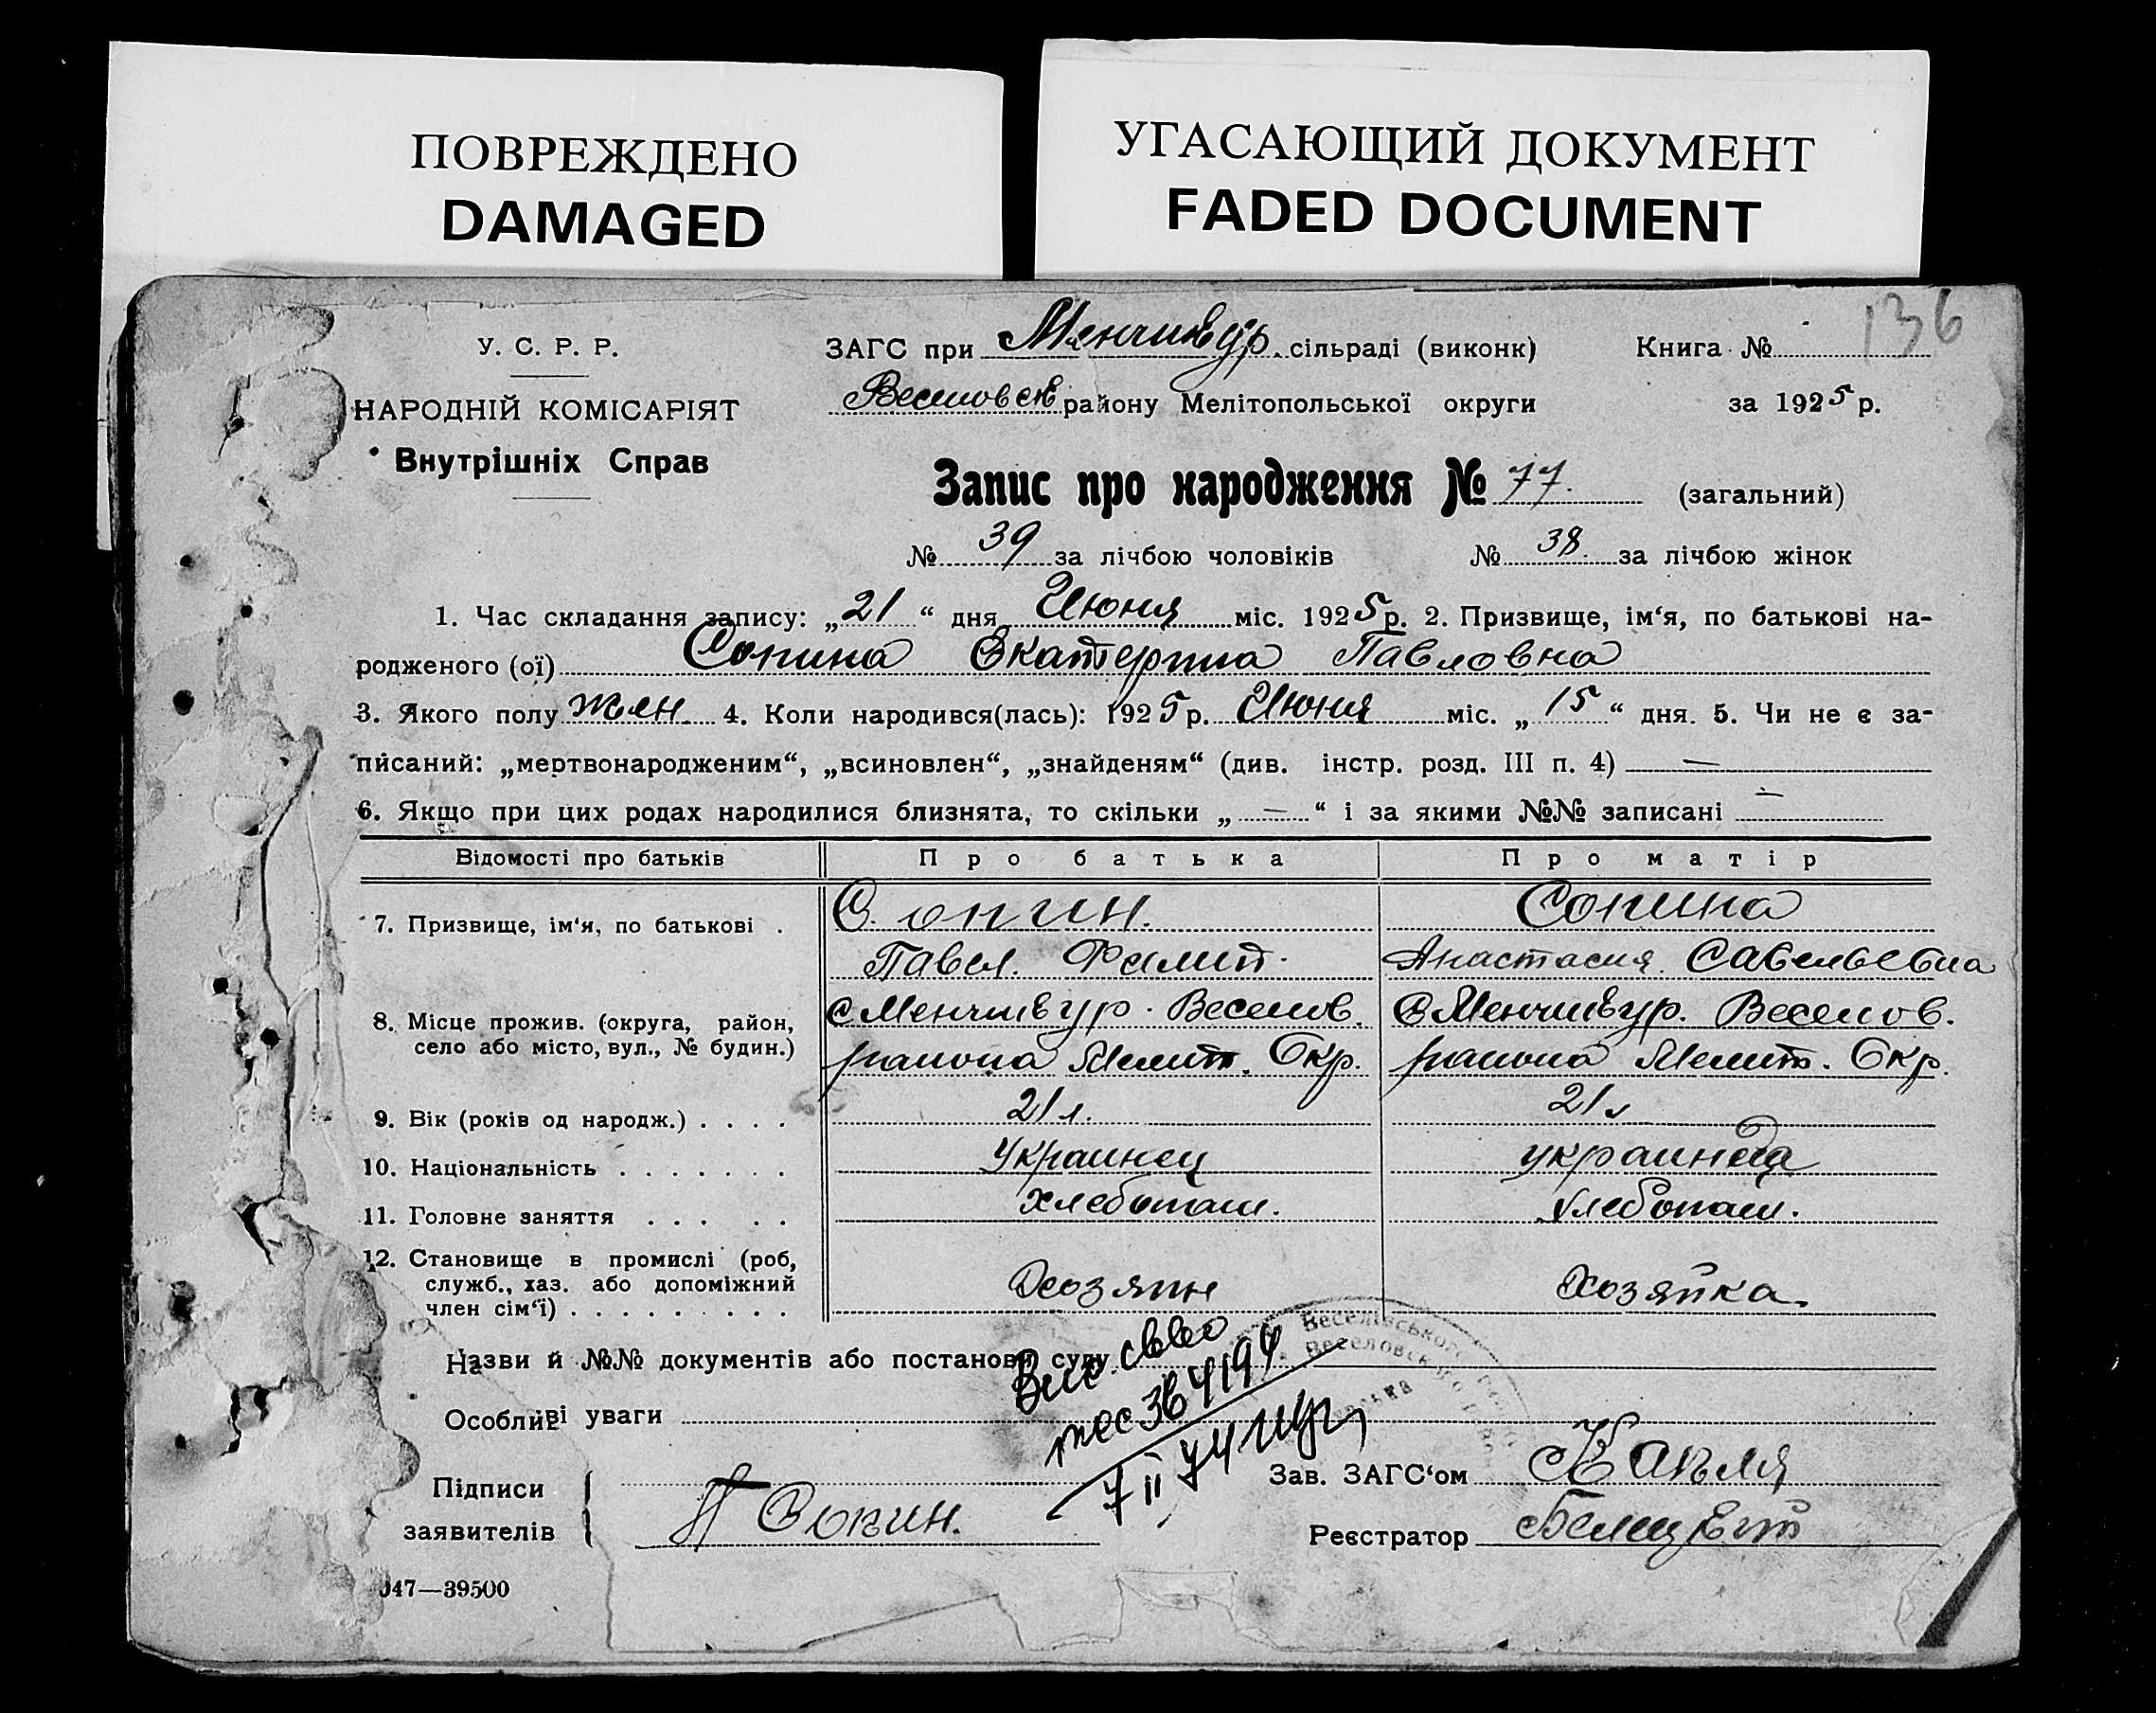 ПОВРЕЖДЕНО
DAMAGED
УГАСАЮЩИЙ ДОКУМЕНТ
FADED DOCUMENT
136
У. С. Р. Р.
НАРОДНІЙ КОМІСАРІЯТ
Внутрішніх Справ
ЗАГС при Менчикур. сільраді (виконк) Книга №
Веселовск району Мелітопольської округи за 1925 р.
Запис про народження № 77. (загальний)
№ 39 за лічбою чоловіків № 38. за лічбою жінок
1. Час складання запису: „21“ дня Июня міс. 1925 р. 2. Призвище, ім‘я, по батькові на-
родженого (ої) Сопина Екатерина Павловна
3. Якого полу жен. 4. Коли народився(лась): 1925 р. Июня міс. „15“ дня. 5. Чи не є за-
писаний: „мертвонародженим“, „всиновлен“, „знайденям“ (див. інстр. розд. III п. 4) —
6. Якщо при цих родах народилися близнята, то скільки „—“ і за якими №№ записані —
Відомості про батьків Про батька Про матір
7. Призвище, ім‘я, по батькові . Сопин. Сопина
Павел. Филип. Анастасия Савельевна
8. Місце прожив. (округа, район, село або місто, вул., № будин.) с Менчикур. Веселов. с Менчикур. Веселов.
района Мелит. Окр. района Мелит. Окр.
9. Вік (років од народж.) . . . . 21 л. 21 л
10. Національність . . . . . . . Украинец украинца
11. Головне заняття . . . . . Хлебопаш. Хлебопаш.
12. Становище в промислі (роб, служб., хаз. або допоміжний член сім‘ї) . . . . . . . . . Хозяин Хозяйка.
Назви й №№ документів або постанови суду
Особливі уваги
Підписи
заявителів
П Сопин.
Зав. ЗАГС‘ом
Реєстратор
047—39500